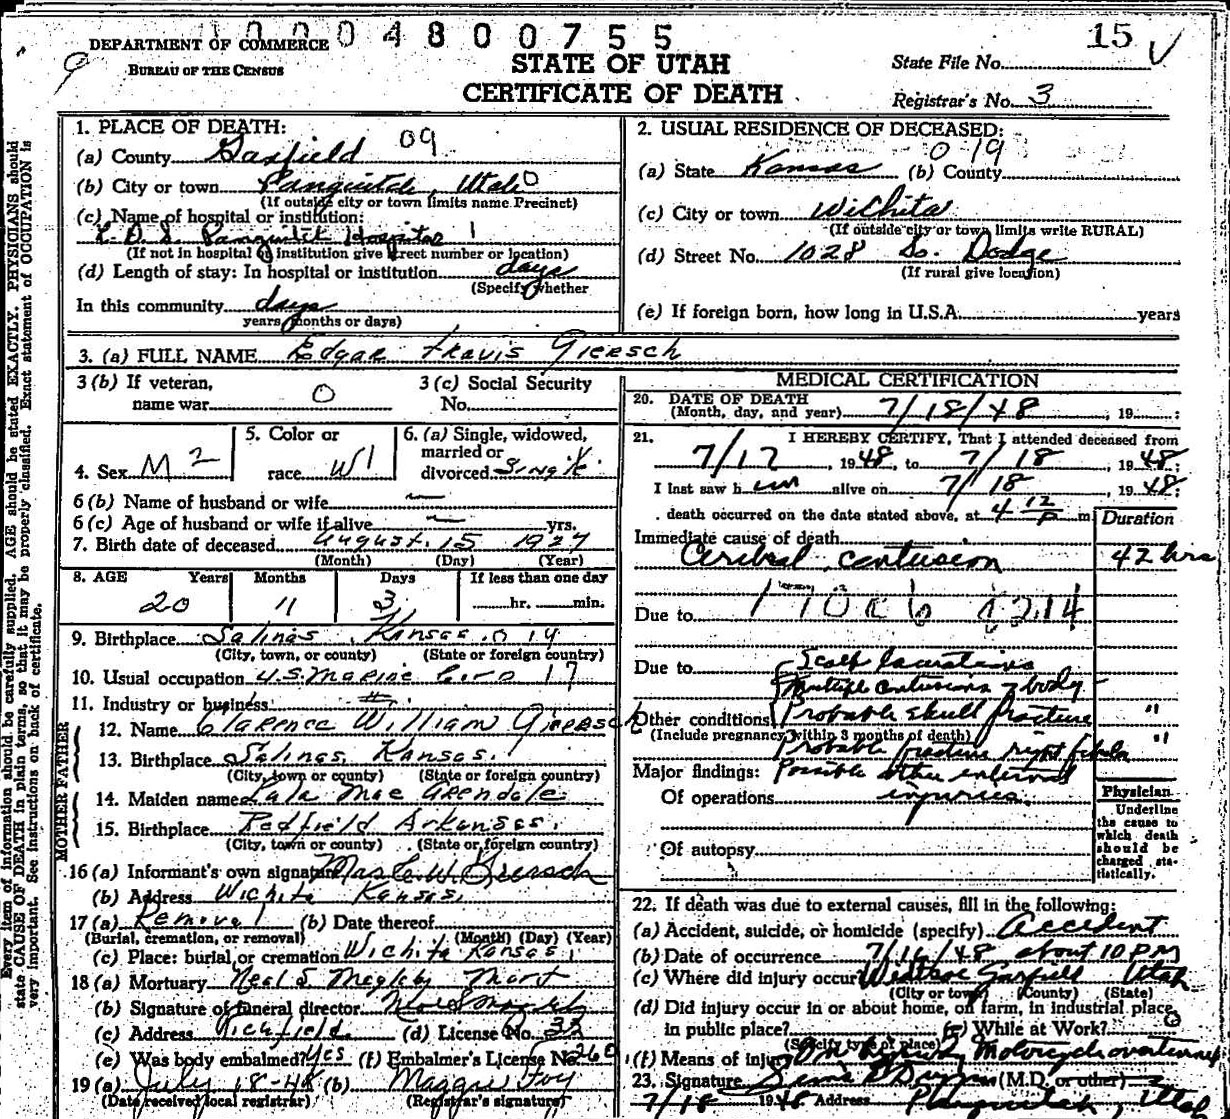 1000 4800755
15
V
9
DEPARTMENT OF COMMERCE
BUREAU OF THE CENSUS
STATE OF UTAH
CERTIFICATE OF DEATH
State File No.
Registrar's No. 3
Every item of information should be carefully supplied. AGE should be stated EXACTLY. PHYSICIANS should
state CAUSE OF DEATH in plain terms, so that it may be properly classified. Exact statement of OCCUPATION is
very important. See instructions on back of certificate.
1. PLACE OF DEATH:
(a) County Garfield 09
(b) City or town Panguitch, Utah 0
(If outside city or town limits name Precinct)
(c) Name of hospital or institution:
L.D.S. Panguitch Hospital 1
(If not in hospital or institution give street number or location)
(d) Length of stay: In hospital or institution days
(Specify whether
In this community days
years months or days)
2. USUAL RESIDENCE OF DECEASED:
0 19
(a) State Kansas (b) County
(c) City or town Wichita
(If outside city or town limits write RURAL)
(d) Street No. 1028 So. Dodge
(If rural give location)
(e) If foreign born, how long in U.S.A. years
3. (a) FULL NAME Edgar Travis Giersch
3 (b) If veteran, name war 0
3 (c) Social Security No.
4. Sex M 2
5. Color or race W 1
6. (a) Single, widowed, married or divorced Single
6 (b) Name of husband or wife —
6 (c) Age of husband or wife if alive — yrs.
7. Birth date of deceased August 15 1927
(Month) (Day) (Year)
8. AGE Years Months Days If less than one day
20 11 3 hr. min.
9. Birthplace Salinas, Kansas. 0 14
(City, town, or county) (State or foreign country)
10. Usual occupation U.S. Marine 17
11. Industry or business
FATHER
12. Name Clarence William Giersch
13. Birthplace Salinas, Kansas.
(City, town or county) (State or foreign country)
MOTHER
14. Maiden name Mae
15. Birthplace Redfield Arkansas.
(City, town or county) (State or foreign country)
16 (a) Informant's own signature Mrs C. W. Giersch
(b) Address Wichita Kansas.
17 (a) Removal (b) Date thereof
(Burial, cremation, or removal) (Month) (Day) (Year)
(c) Place: burial or cremation Wichita Kansas.
18 (a) Mortuary Neal S. Magleby Mort
(b) Signature of funeral director Neal S Magleby
(c) Address Richfield (d) License No. 32
(e) Was body embalmed? Yes (f) Embalmer's License No. 260
19 (a) July 18-48 (b) Maggie Foy
(Date received local registrar) (Registrar's signature)
MEDICAL CERTIFICATION
20. DATE OF DEATH
(Month, day, and year) 7/18/48, 19
21. I HEREBY CERTIFY, That I attended deceased from
7/17, 1948, to 7/18, 1948;
I last saw him alive on 7/18, 1948;
death occurred on the date stated above, at 4 12 P m
Duration
Immediate cause of death
Cerebral contusion 42 hrs
Due to
Due to Scalp lacerations
Multiple contusions of body
Other conditions Probable skull fracture "
(Include pregnancy within 3 months of death)
Probable fracture right fibula "
Major findings: Possible other internal
Of operations injuries.
Of autopsy
Physician
Underline the cause to which death should be charged statistically.
22. If death was due to external causes, fill in the following:
(a) Accident, suicide, or homicide (specify) Accident
(b) Date of occurrence 7/16/48 about 10 PM
(c) Where did injury occur Garfield Utah
(City or town) (County) (State)
(d) Did injury occur in or about home, on farm, in industrial place,
in public place? (e) While at Work?
(Specify type of place)
(f) Means of injury On Motorcycle overturned
23. Signature (M.D. or other)
7/18 1948 Address Panguitch, Utah